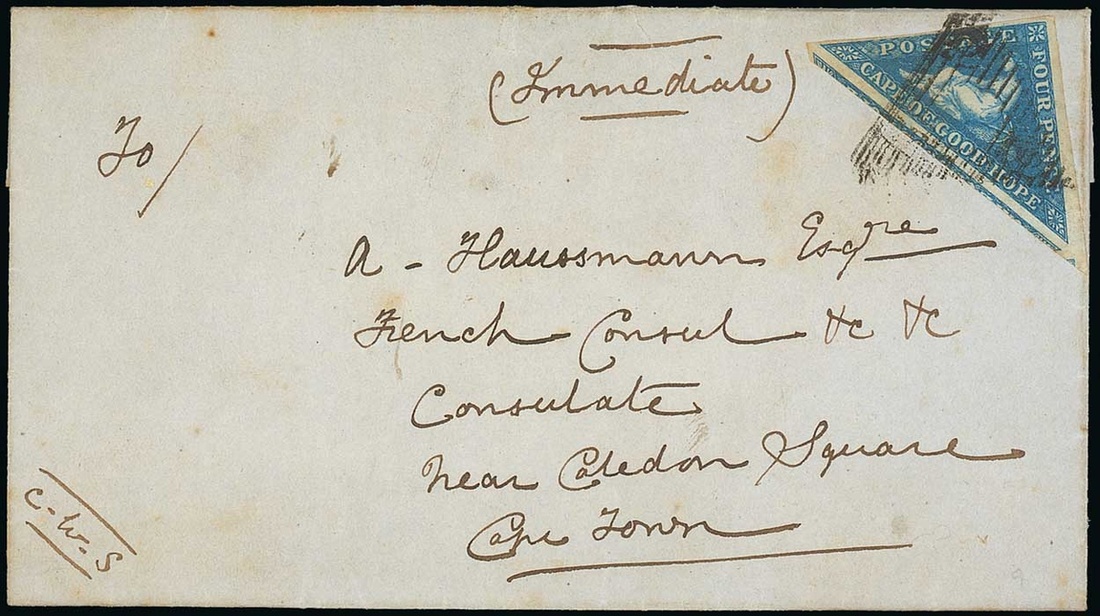 (Immediate)
To/
A - Haussmann Esqre
French Consul &c &c
Consulate
Near Caledon Square
Cape Town
C-W-S
POSTAGE
FOUR PENCE
CAPE OF GOOD HOPE
9